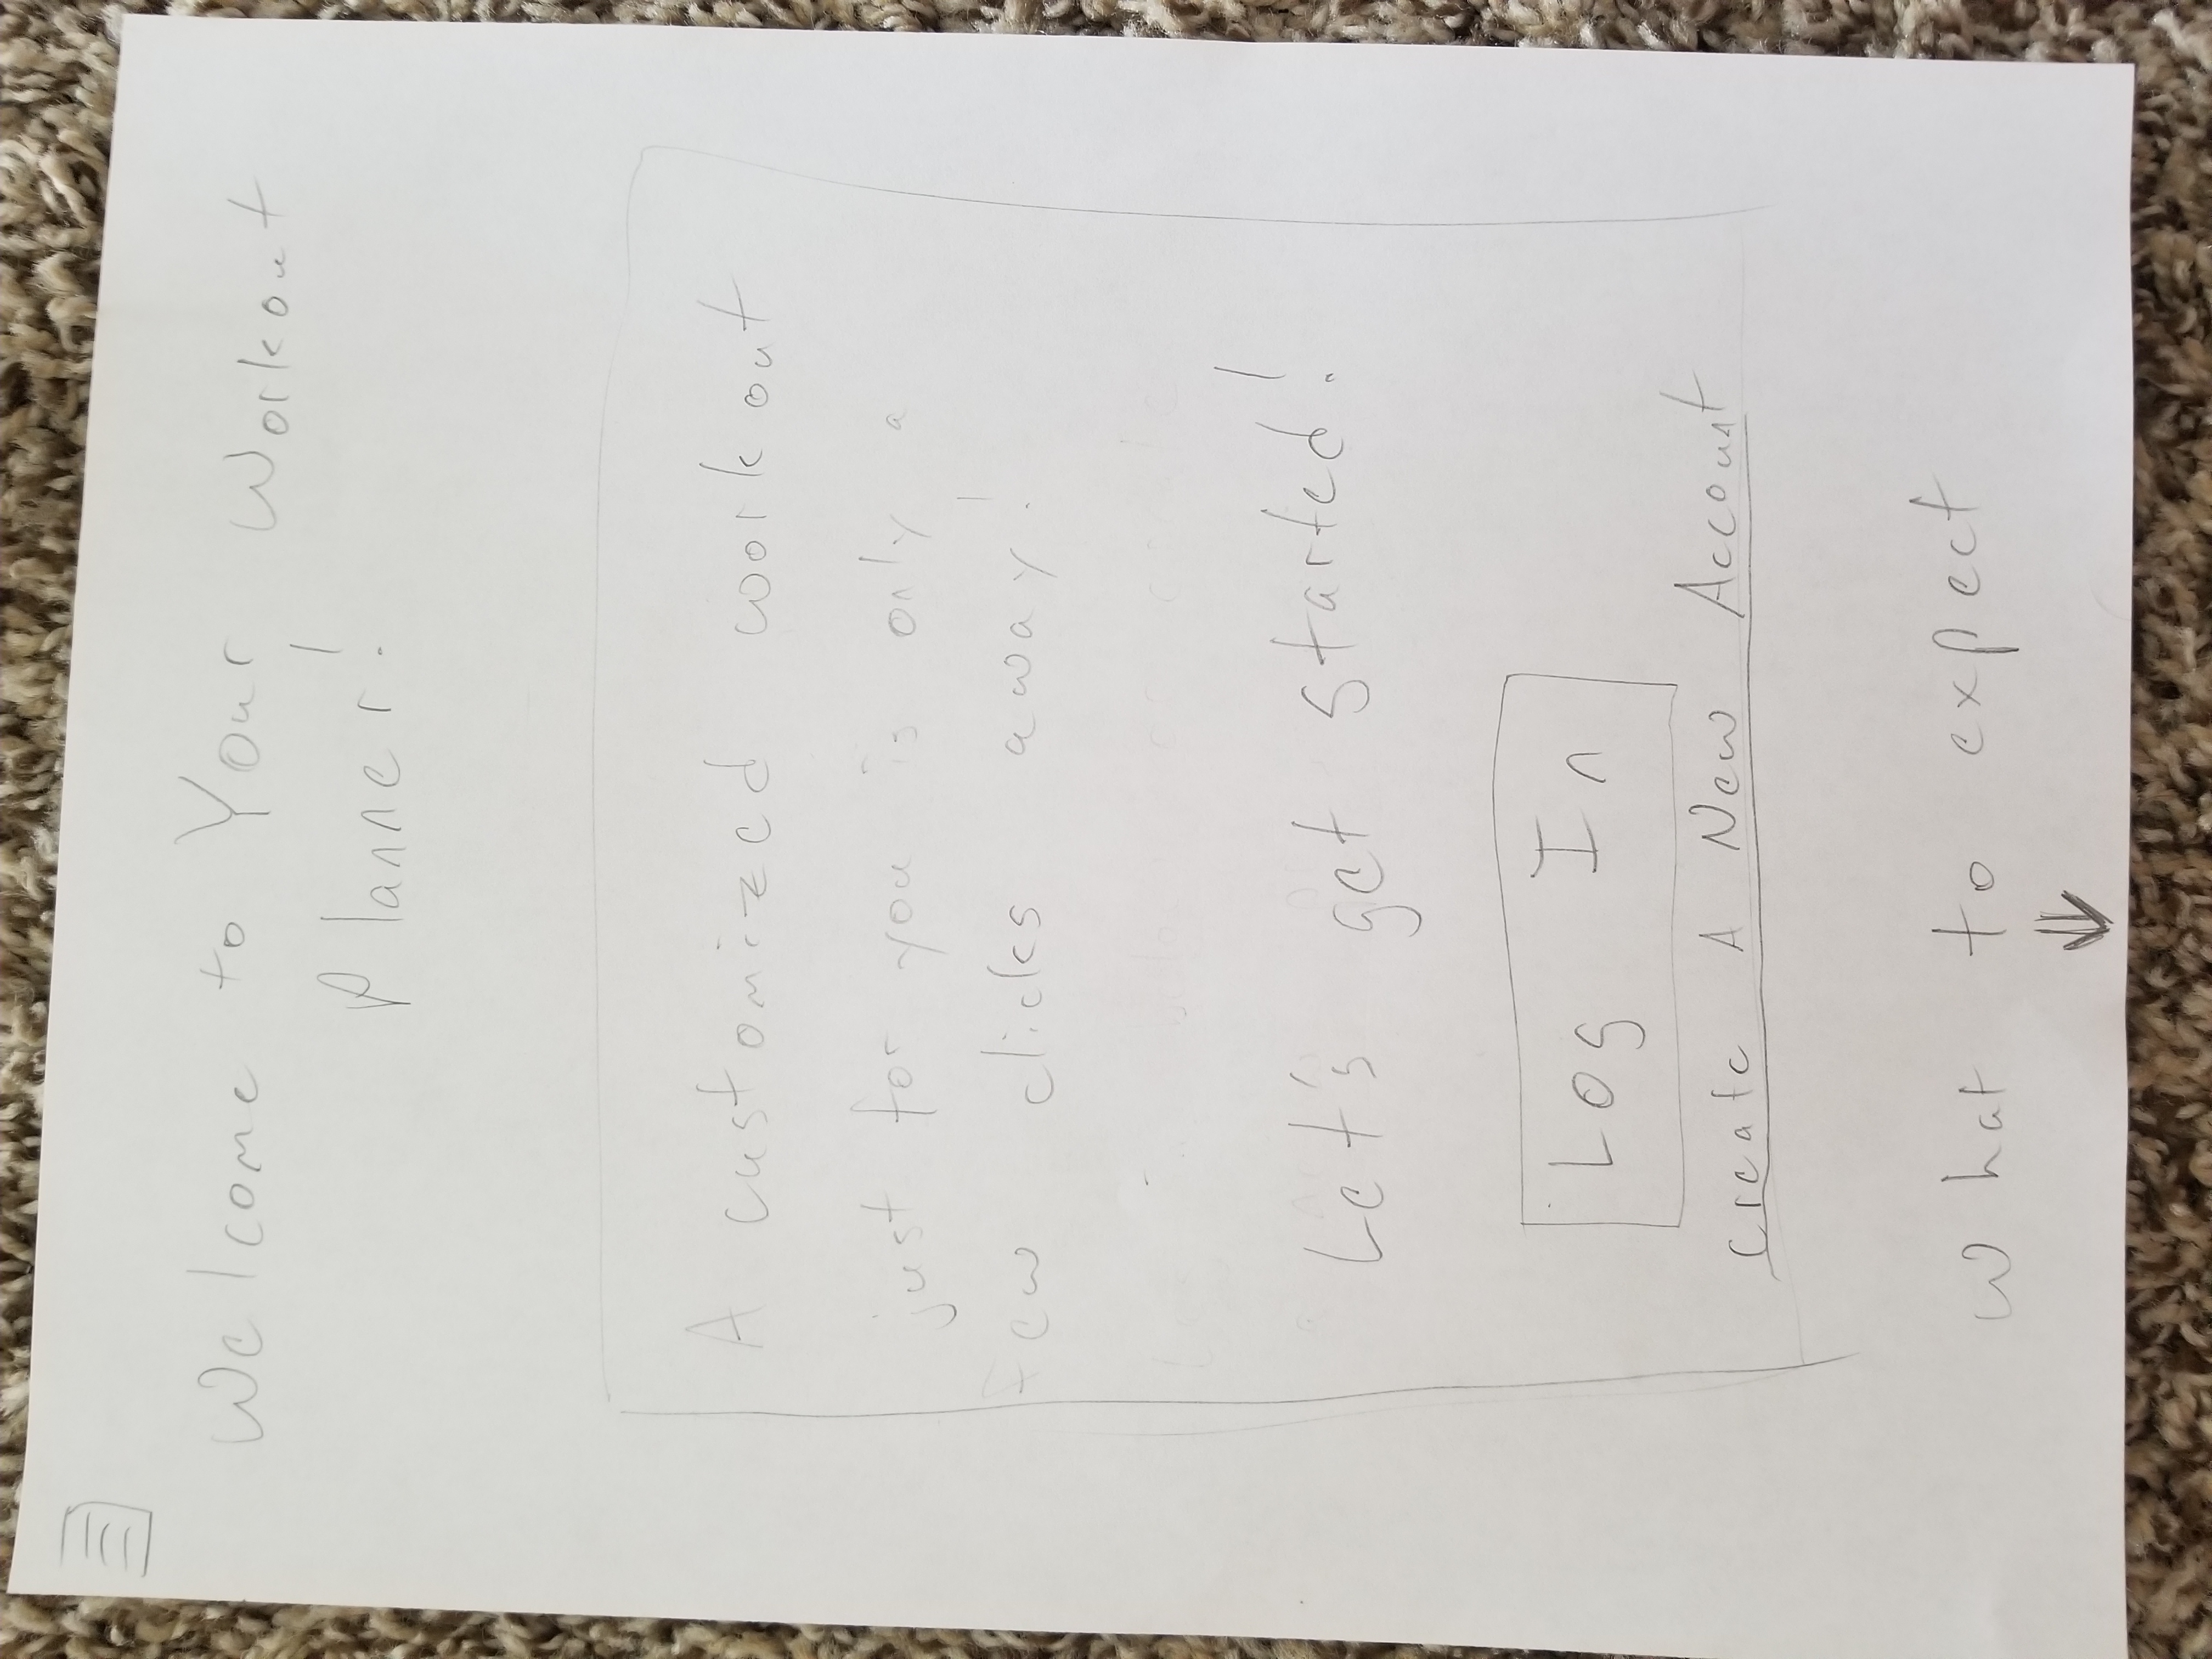 Welcome to Your Workout
Planner!
A customized workout
just for you is only a
few clicks away!
Let's get started!
Log In
Create A New Account
What to expect